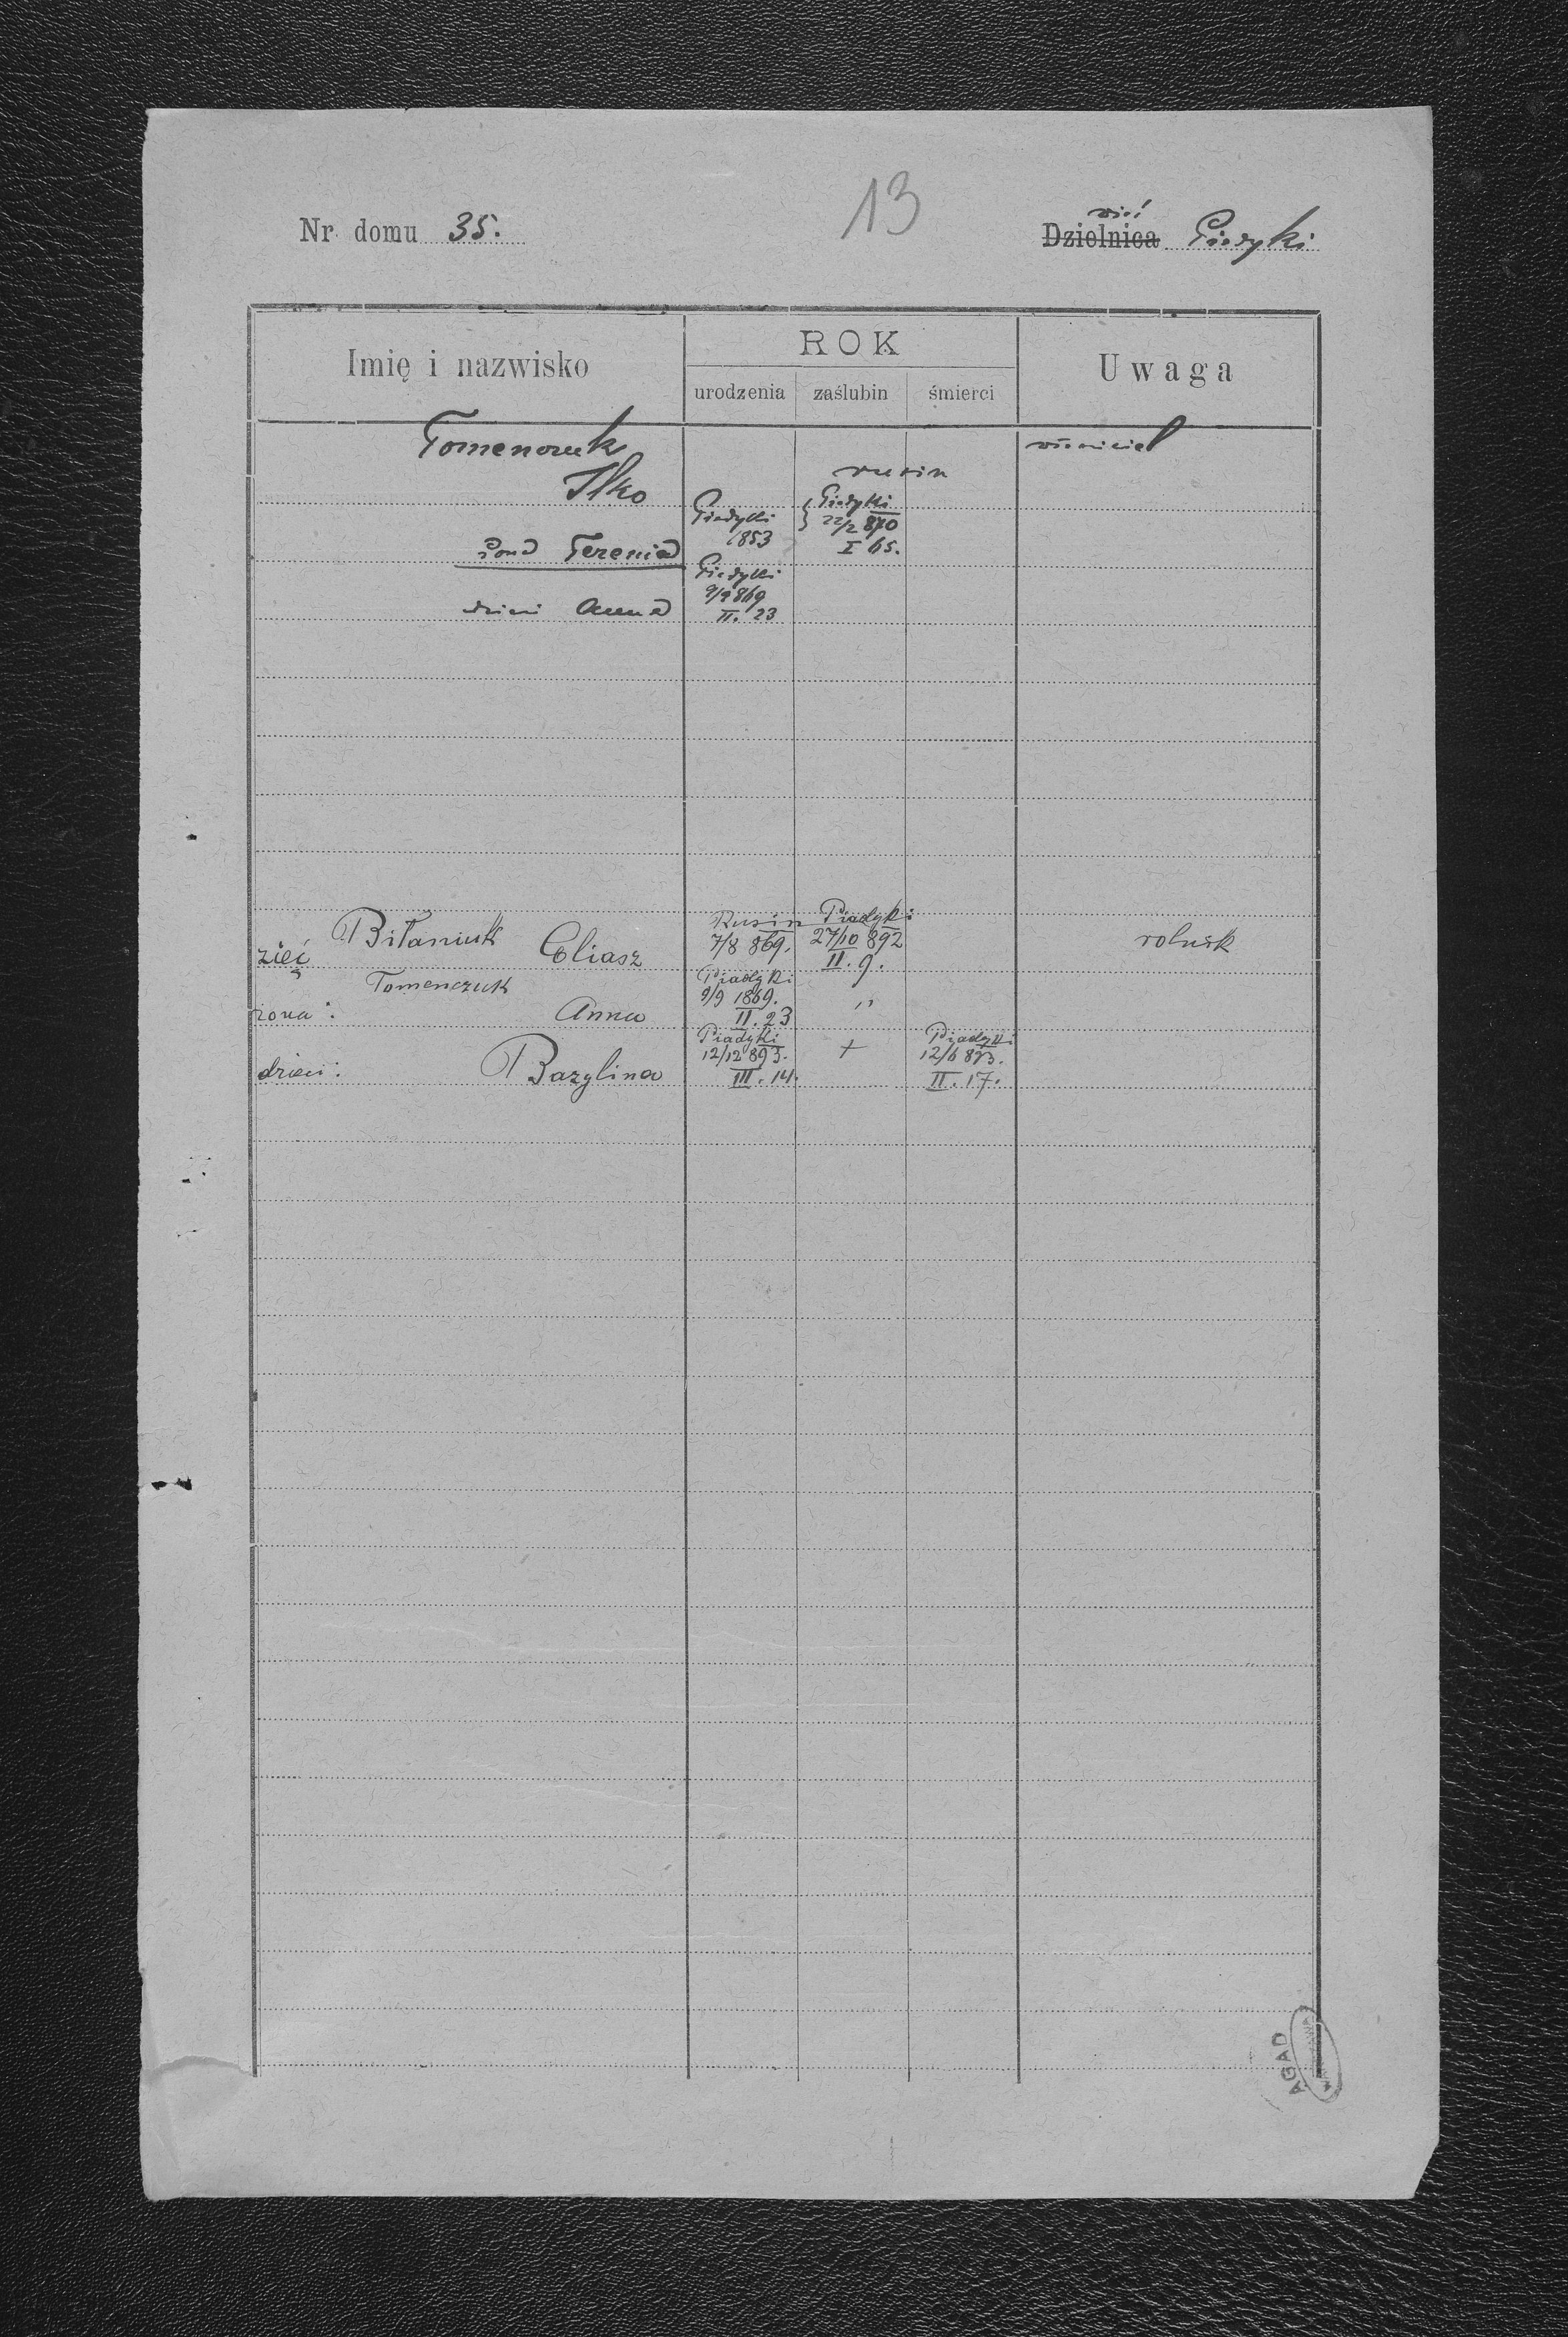 13
Nr domu 35.
wieś
Dzielnica Piadyki
Imię i nazwisko
ROK
urodzenia zaślubin śmierci
Uwaga
Tomenczuk
Ilko
rusin
włościciel
Piadyki
1853
Piadyki
22/2 870
I 65.
żona Terenia
Piadyki
9/9 869
II. 23
dzieci Anna
zięć Biłaniuk Eliasz
Rusin
7/8 869.
Piadyki
27/10 892
II. 9.
rolnik
Tomenczuk
żona: Anna
Piadyki
9/9 1869.
II. 23
"
dzieci: Bazylina
Piadyki
12/12 893.
III. 14.
+
Piadyki
12/6 893.
II. 17.
AGAD
WARSZAWA